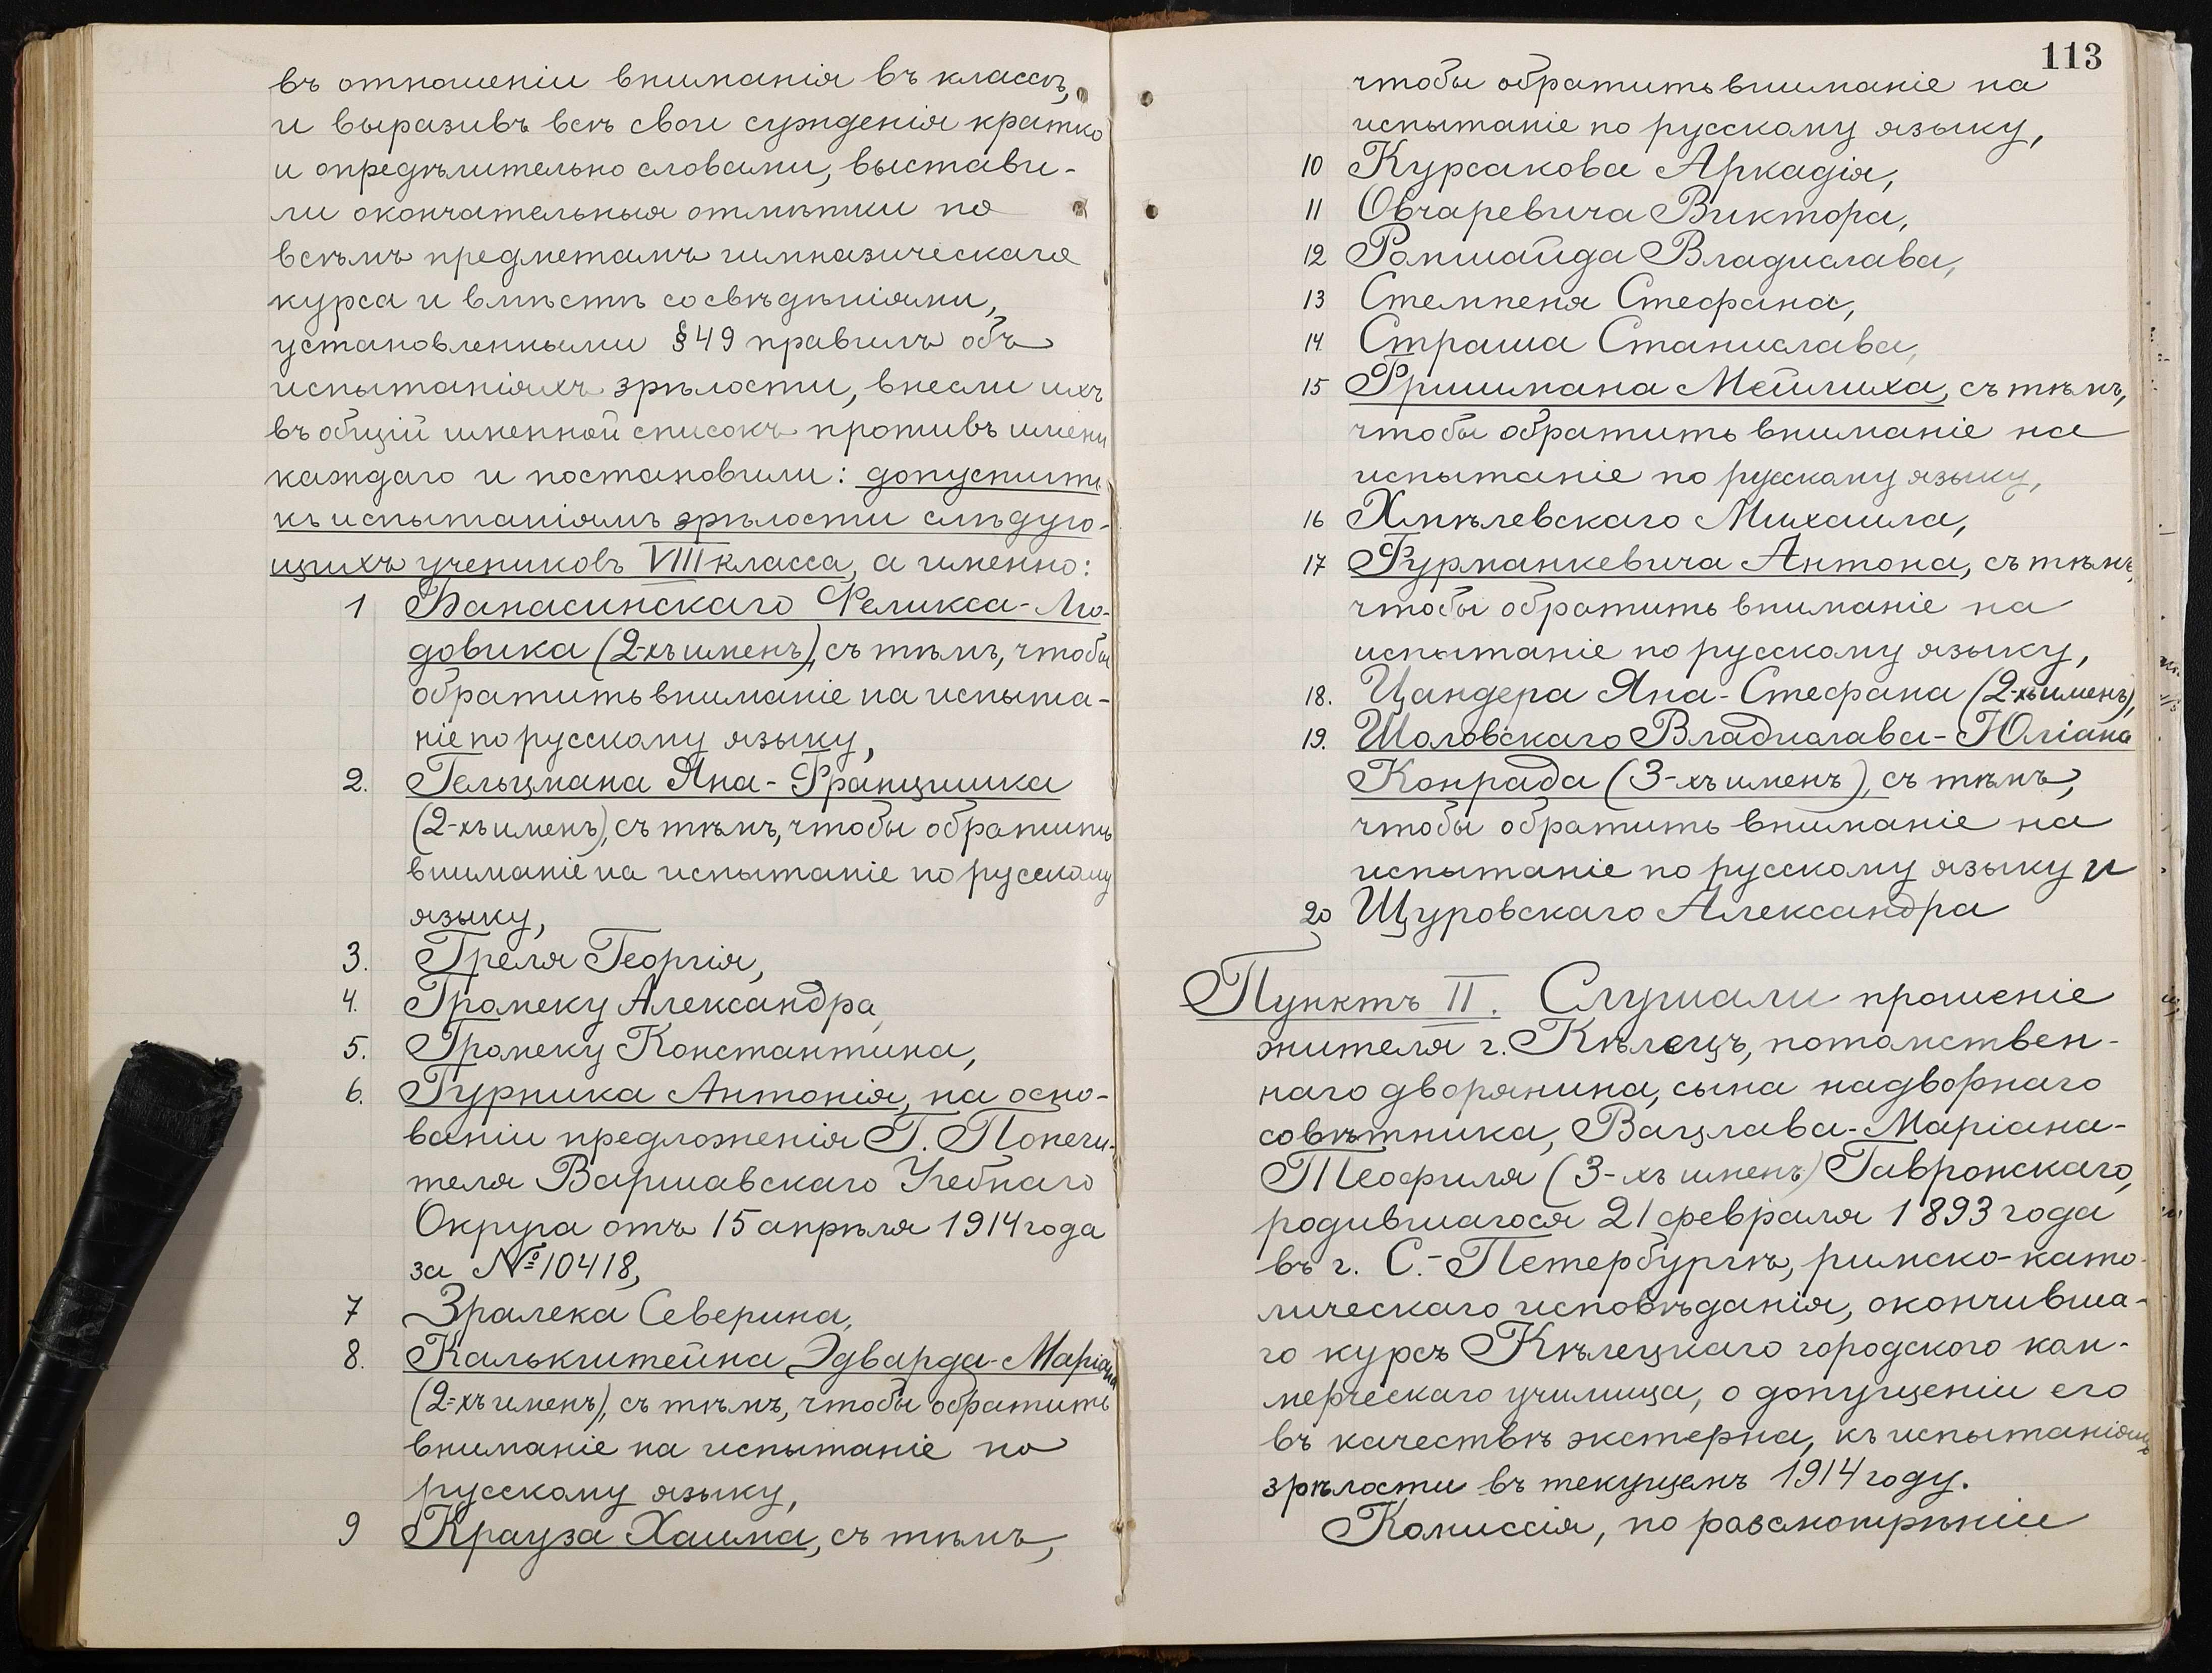 въ отношеніи вниманія въ классѣ,
и выразивъ всѣ свои сужденія кратко
и опредѣлительно словами, выстави-
ли окончательныя отмѣтки по
всѣмъ предметамъ гимназическаго
курса и вмѣстѣ со свѣдѣніями,
установленными §49 правилъ объ
испытаніяхъ зрѣлости, внесли ихъ
въ общій именной списокъ противъ имени
каждаго и постановили: допустить
къ испытаніямъ зрѣлости слѣдую-
щихъ учениковъ VIII класса, а именно:
1 Банасинскаго Феликса-Лю-
довика (2-хъ именъ), съ тѣмъ, чтобы
обратить вниманіе на испыта-
ніе по русскому языку,
2. Гельцмана Яна-Францишка
(2-хъ именъ), съ тѣмъ, чтобы обратить
вниманіе на испытаніе по русскому
языку,
3. Греля Георгія,
4. Громеку Александра,
5. Громеку Константина,
6. Гурника Антонія, на осно-
ваніи предложенія Г. Попечи-
теля Варшавскаго Учебнаго
Округа отъ 15 апрѣля 1914 года
за №10418,
7 Зралека Северина,
8. Калькштейна Эдварда-Маріана
(2-хъ именъ), съ тѣмъ, чтобы обратить
вниманіе на испытаніе по
русскому языку,
9 Крауза Хаима, съ тѣмъ,
113
чтобы обратить вниманіе на
испытаніе по русскому языку,
10 Курсакова Аркадія,
11 Овчаревича Виктора,
12 Ромшайда Владислава,
13 Стемпеня Стефана,
14 Страша Станислава,
15 Фришмана Мейлиха, съ тѣмъ,
чтобы обратить вниманіе на
испытаніе по русскому языку,
16 Хмѣлевскаго Михаила,
17 Фурманкевича Антона, съ тѣмъ,
чтобы обратить вниманіе на
испытаніе по русскому языку,
18. Цандера Яна-Стефана (2-хъ именъ),
19. Шоловскаго Владислава-Юліана
Конрада (3-хъ именъ), съ тѣмъ,
чтобы обратить вниманіе на
испытаніе по русскому языку и
20 Щуровскаго Александра
Пунктъ II. Слушали прошеніе
жителя г. Кѣлецъ, потомствен-
наго дворянина, сына надворнаго
совѣтника, Вацлава-Маріана-
Теофиля (3-хъ именъ) Гавронскаго,
родившагося 21 февраля 1893 года
въ г. С.-Петербургѣ, римско-като-
лическаго исповѣданія, окончивша-
го курсъ Кѣлецкаго городского ком-
мерческаго училища, о допущеніи его
въ качествѣ экстерна, къ испытаніямъ
зрѣлости въ текущемъ 1914 году.
Комиссія, по разсмотрѣніи